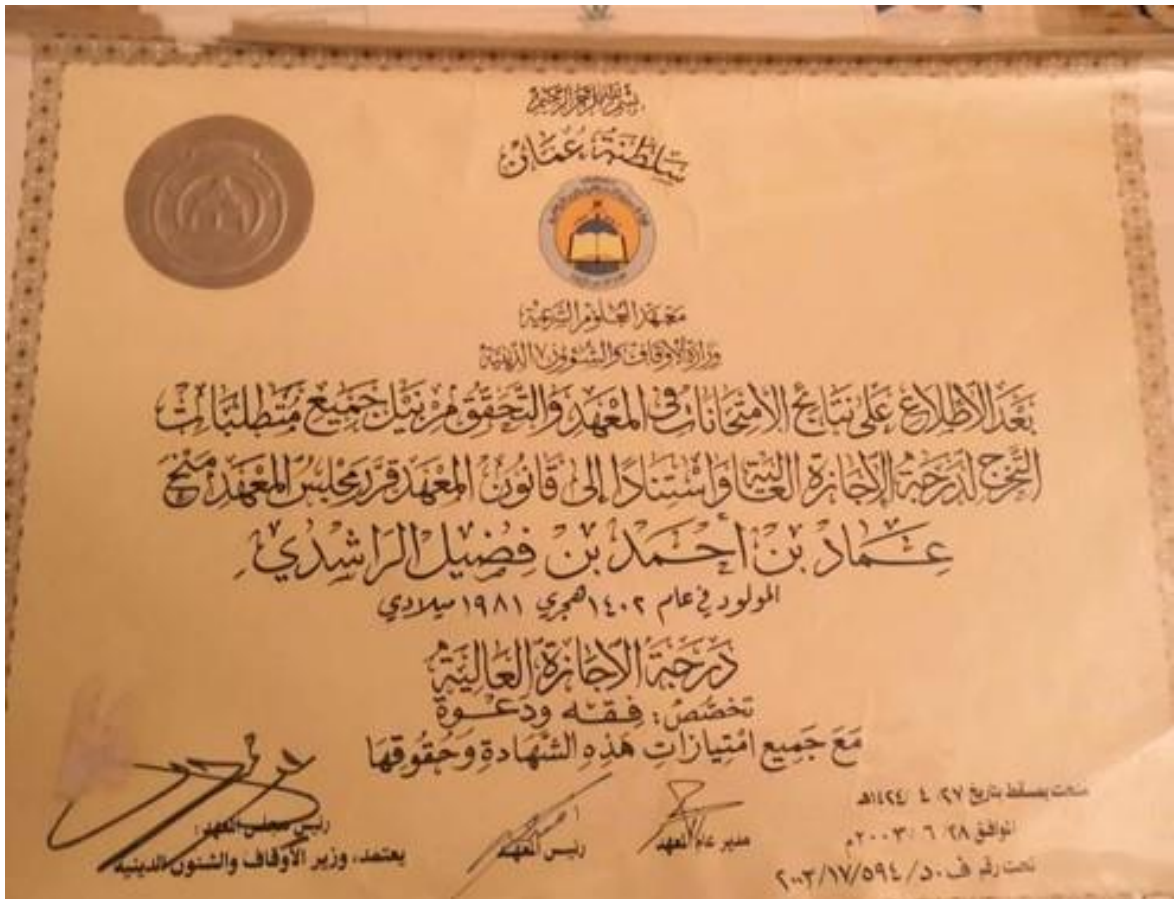 بسم الله الرحمن الرحيم
سلطنة عمان
معهد العلوم الشرعية
وزارة الأوقاف والشئون الدينية
بعد الاطلاع على نتائج الامتحانات في المعهد والتحقق من نيل جميع متطلبات
التخرج لدرجة الإجازة العالية واستنادًا إلى قانون المعهد قرر مجلس المعهد منح
عماد بن أحمد بن فضيل الراشدي
المولود في عام ١٤٠٢ هجري ١٩٨١ ميلادي
درجة الاجازة العالية
تخصص: فقه ودعوة
مع جميع امتيازات هذه الشهادة وحقوقها
منحت بمسقط بتاريخ ٢٧/ ٤ /١٤٢٤هـ
الموافق ٢٨/ ٦ /٢٠٠٣م
تحت رقم ف.د/٥٩٤/١٧/٢٠٠٣
مدير عام المعهد
رئيس المعهد
رئيس مجلس المعهد:
يعتمد، وزير الأوقاف والشئون الدينية